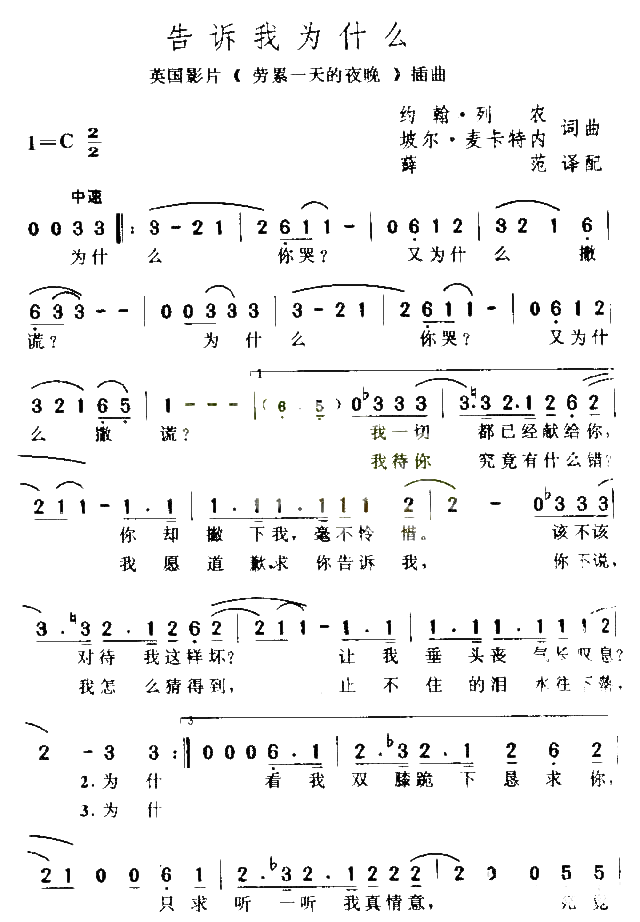 告诉我为什么
英国影片（劳累一天的夜晚）插曲
约翰·列农
坡尔·麦卡特内 词曲
薛范 译配
1=C 2/2
中速
0 0 3 3 ‖: 3 - 2 1 | 2 6 1 1 - | 0 6 1 2 | 3 2 1 6
为什 么 你哭？ 又为什 么 撒
6 3 3 - - | 0 0 3 3 3 | 3 - 2 1 | 2 6 1 1 - | 0 6 1 2
谎？ 为什 么 你哭？ 又为什
3 2 1 6 5 | 1 - - - | （6 . 5） | 0 ♭3 3 3 | 3 . ♮3 2 . 1 2 6 2
1
么 撒 谎？ 我一切 都已经献给你，
我待你 究竟有什么错？
2 1 1 - 1 . 1 | 1 . 1 1 . 1 1 1 2 | 2 - 0 ♭3 3 3
你 却 撇 下我，毫不怜 惜。 该不该
我 愿 道 歉，求 你告诉 我， 你不说，
3 . ♮3 2 . 1 2 6 2 | 2 1 1 - 1 . 1 | 1 . 1 1 . 1 1 . 1 2
对待 我这样坏？ 让 我 垂 头丧 气长叹息？
我怎 么猜得到， 止 不 住的泪 水往下落，
2 - 3 3 :‖ 0 0 0 6 . 1 | 2 . ♭3 2 . 1 2 6 2
3
2.为 什 看 我 双 膝跪 下 恳 求 你，
3.为 什
2 1 0 0 6 1 | 2 . ♭3 2 . 1 2 2 2 | 2 - 0 5 5
只 求 听 一听 我真情意， 究 竟